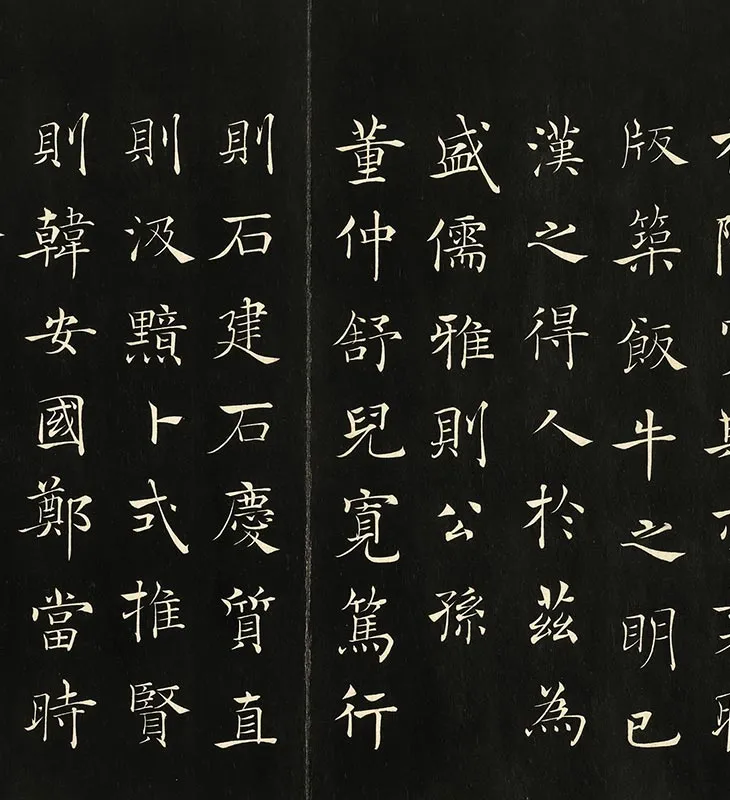 版築飯牛之明已
漢之得人於茲為
盛儒雅則公孫
董仲舒兒寬篤行
則石建石慶質直
則汲黯卜式推賢
則韓安國鄭當時